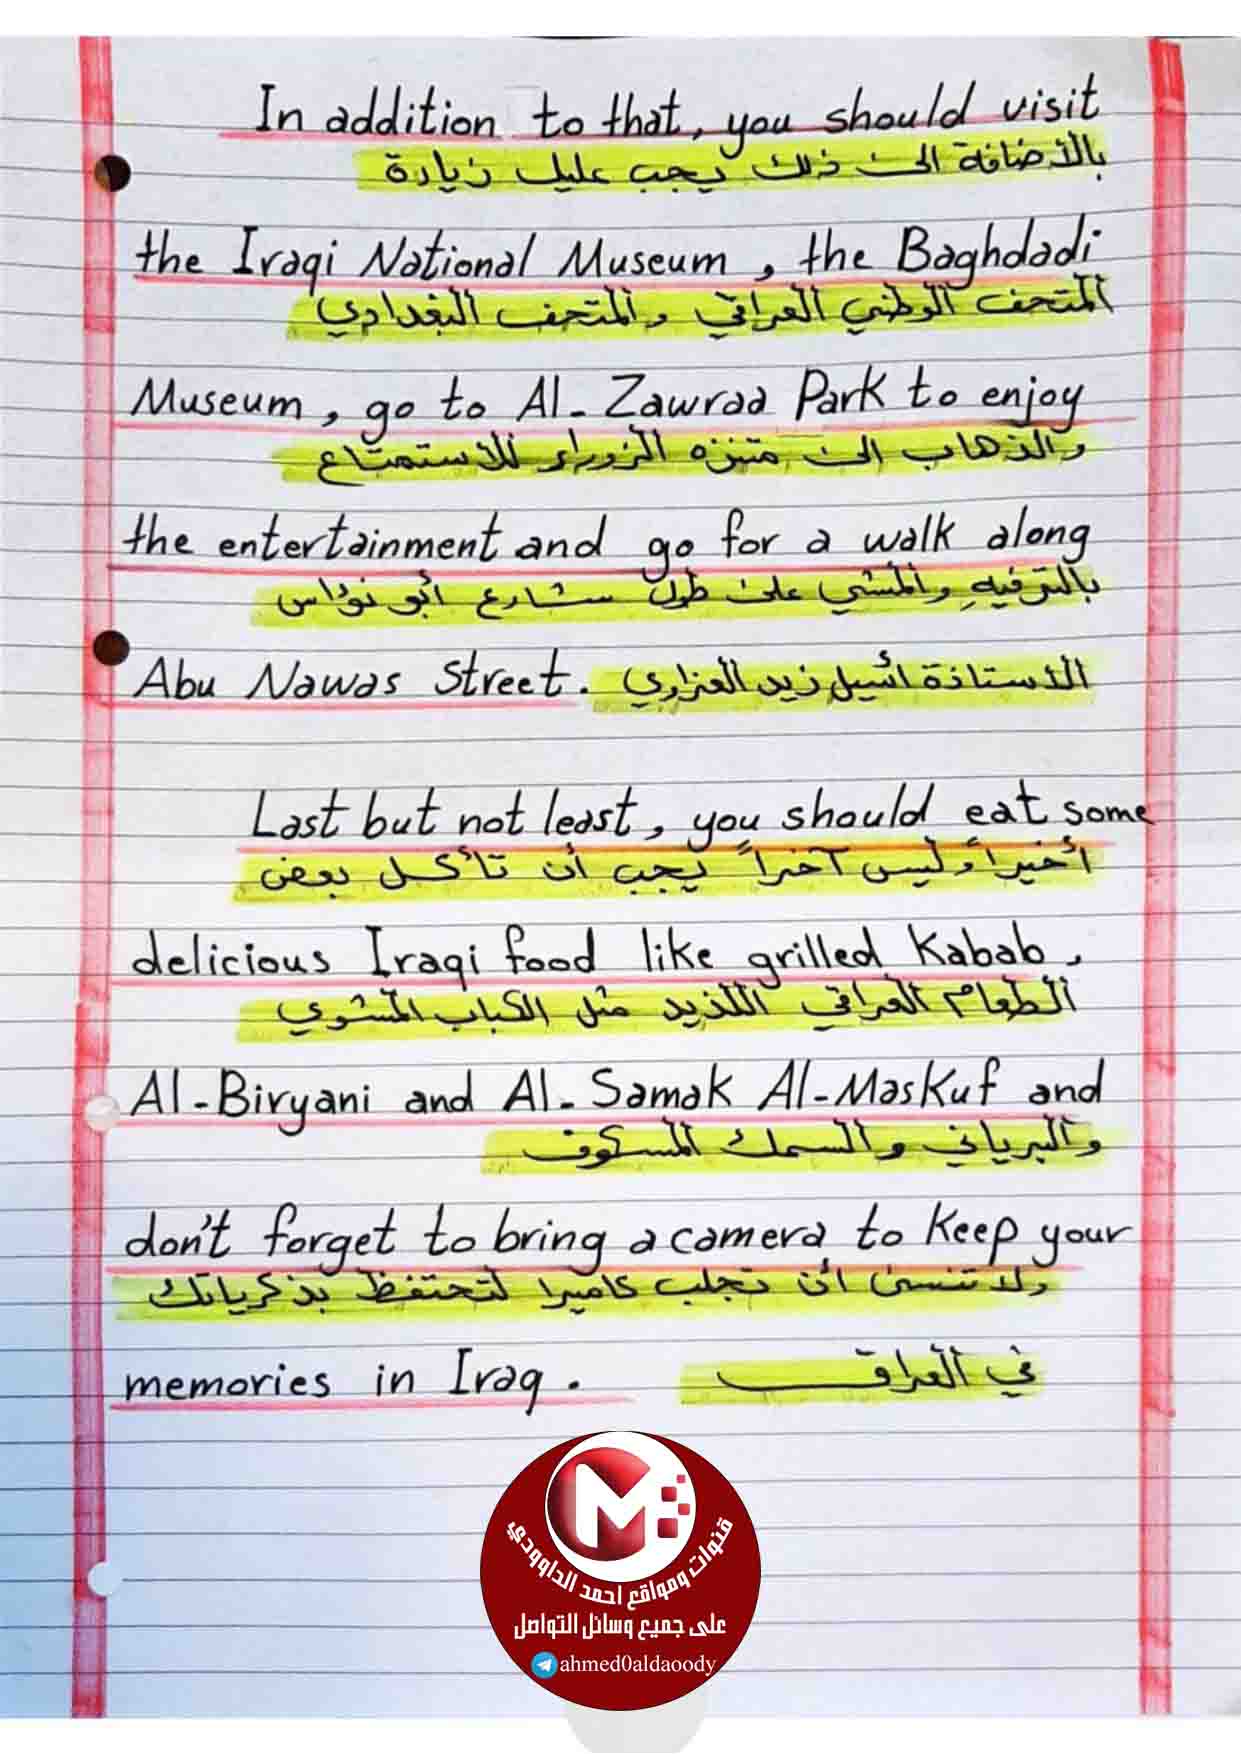 In addition to that, you should visit
بالأضافة الى ذلك يجب عليك زيارة
the Iraqi National Museum, the Baghdadi
المتحف الوطني العراقي والمتحف البغدادي
Museum, go to Al-Zawraa Park to enjoy
والذهاب الى متنزه الزوراء للاستمتاع
the entertainment and go for a walk along
بالترفيهِ والمشي على طول شارع أبو نؤاس
Abu Nawas Street. الاستاذة أسيل زيد العزاوي
Last but not least, you should eat some
أخيراً وليس آخراً يجب أن تأكل بعض
delicious Iraqi food like grilled Kabab,
الطعام العراقي اللذيذ مثل الكباب المشوي
Al-Biryani and Al-Samak Al-Maskuf and
والبرياني والسمك المسكوف
don't forget to bring a camera to keep your
ولا تنسى أن تجلب كاميرا لتحتفظ بذكرياتك
memories in Iraq. في العراق
M
قنوات ومواقع احمد الداوودي
على جميع وسائل التواصل
ahmed0aldaoody